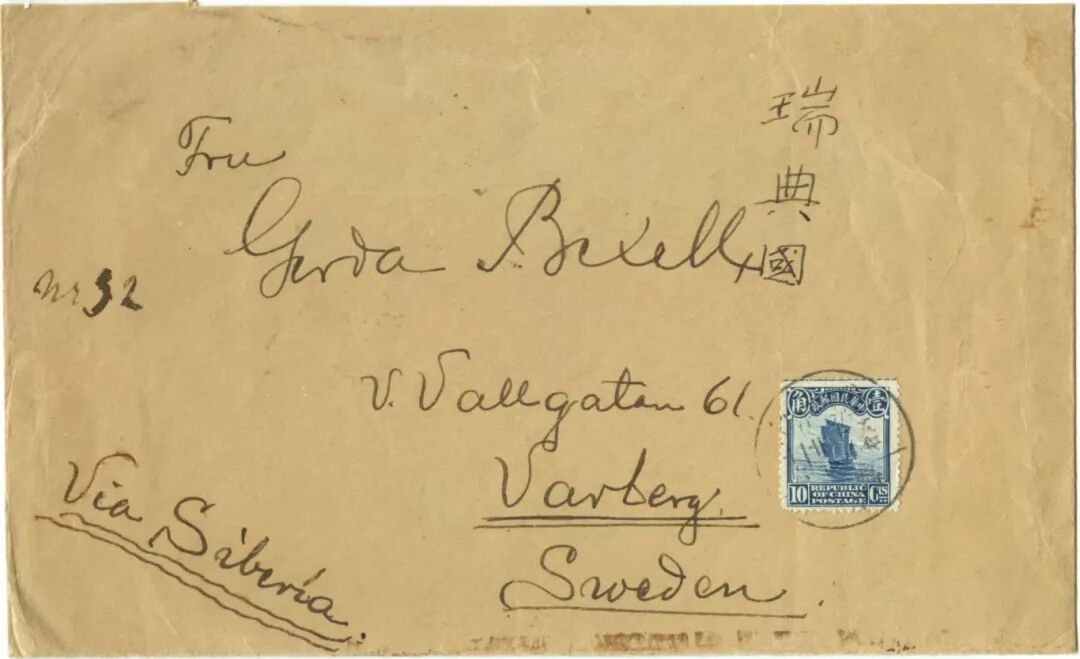 Fru
Gerda Bexell
瑞典國
Nr 32
V. Vallgatan 61.
Varberg.
Sweden.
Via Siberia.
角 中華民國郵政 壹
10 REPUBLIC OF CHINA POSTAGE Cts